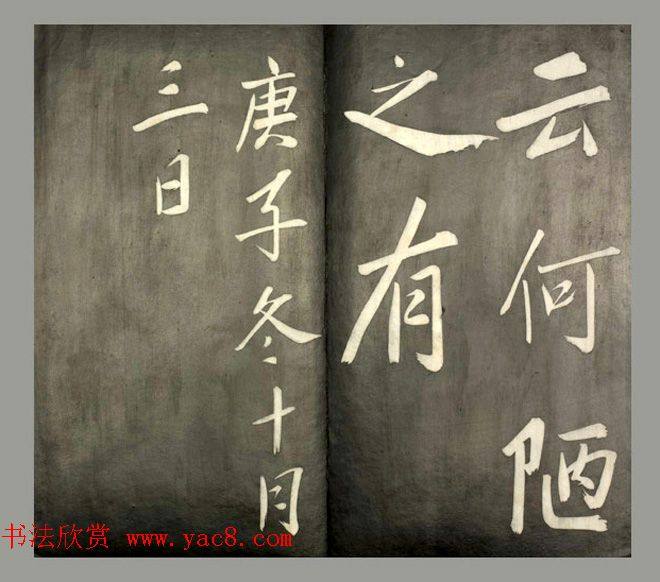 云何陋
之有
庚子冬十月
三日
书法欣赏 www.yac8.com